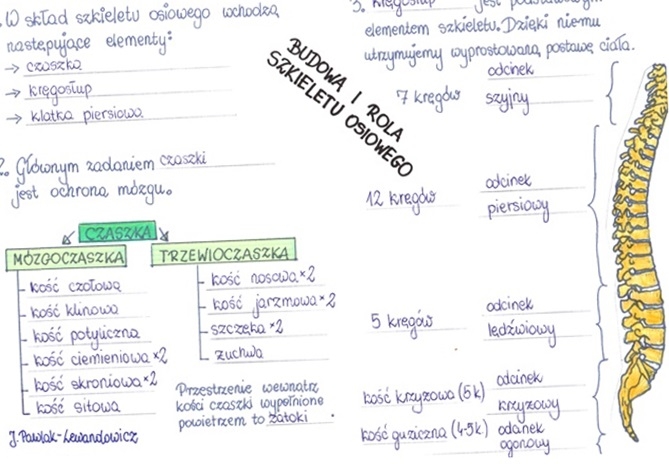 1. W skład szkieletu osiowego wchodzą
następujące elementy:
→ czaszka
→ kręgosłup
→ klatka piersiowa
2. Głównym zadaniem czaszki
jest ochrona mózgu.
BUDOWA I ROLA
SZKIELETU OSIOWEGO
CZASZKA
MÓZGOCZASZKA
kość czołowa
kość klinowa
kość potyliczna
kość ciemieniowa ×2
kość skroniowa ×2
kość sitowa
TRZEWIOCZASZKA
kość nosowa ×2
kość jarzmowa ×2
szczęka ×2
żuchwa
Przestrzenie wewnątrz
kości czaszki wypełnione
powietrzem to zatoki
J. Pawlak-Lewandowicz
3. Kręgosłup jest podstawowym
elementem szkieletu. Dzięki niemu
utrzymujemy wyprostowaną postawę ciała.
7 kręgów
odcinek
szyjny
12 kręgów
odcinek
piersiowy
5 kręgów
odcinek
lędźwiowy
kość krzyżowa (5k)
odcinek
krzyżowy
kość guziczna (4-5k)
odcinek
ogonowy